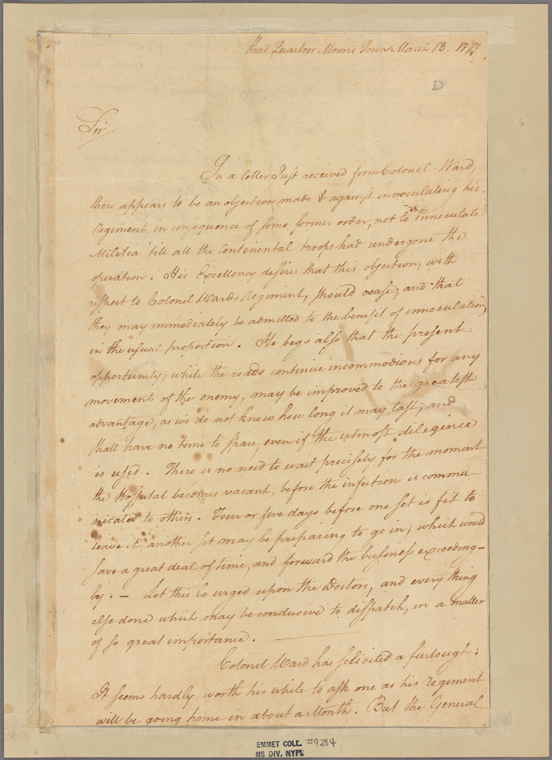 Head Quarters Morris Town March 13. 1777
D
Sir
In a letter Just received from Colonel Ward,
there appears to be an objection made & against innoculating his
Regiment, in consequence of some former order, not to innoculate
Militia 'till all the Continental troops had undergone the
operation. His Excellency desires that this objection, with
respect to Colonel Wards Regiment, should cease; and that
they may immediately be admitted to the benefit of innoculation,
in the usual proportion. He begs also that the present
opportunity, while the roads continue incommodious for any
movements of the enemy, may be improved to the greatest
advantage, as we do not know how long it may last; and
shall have no time to spare, even if the utmost deligence
is used. There is no need to wait precisely for the moment
the Hospital becomes vacant, before the infection is commu-
nicated to others. Four or five days before one set is fit to
leave it, another set may be preparing to go in; which would
save a great deal of time, and forward the business exceeding-
ly. — Let this be urged upon the Doctors, and every thing
else done which may be conducive to dispatch, in a matter
of so great importance.
Colonel Ward has solicited a furlough:
It seems hardly worth his while to ask one as his regiment
will be going home in about a Month. But the General
EMMET COLL. #9284
MS DIV. NYPL